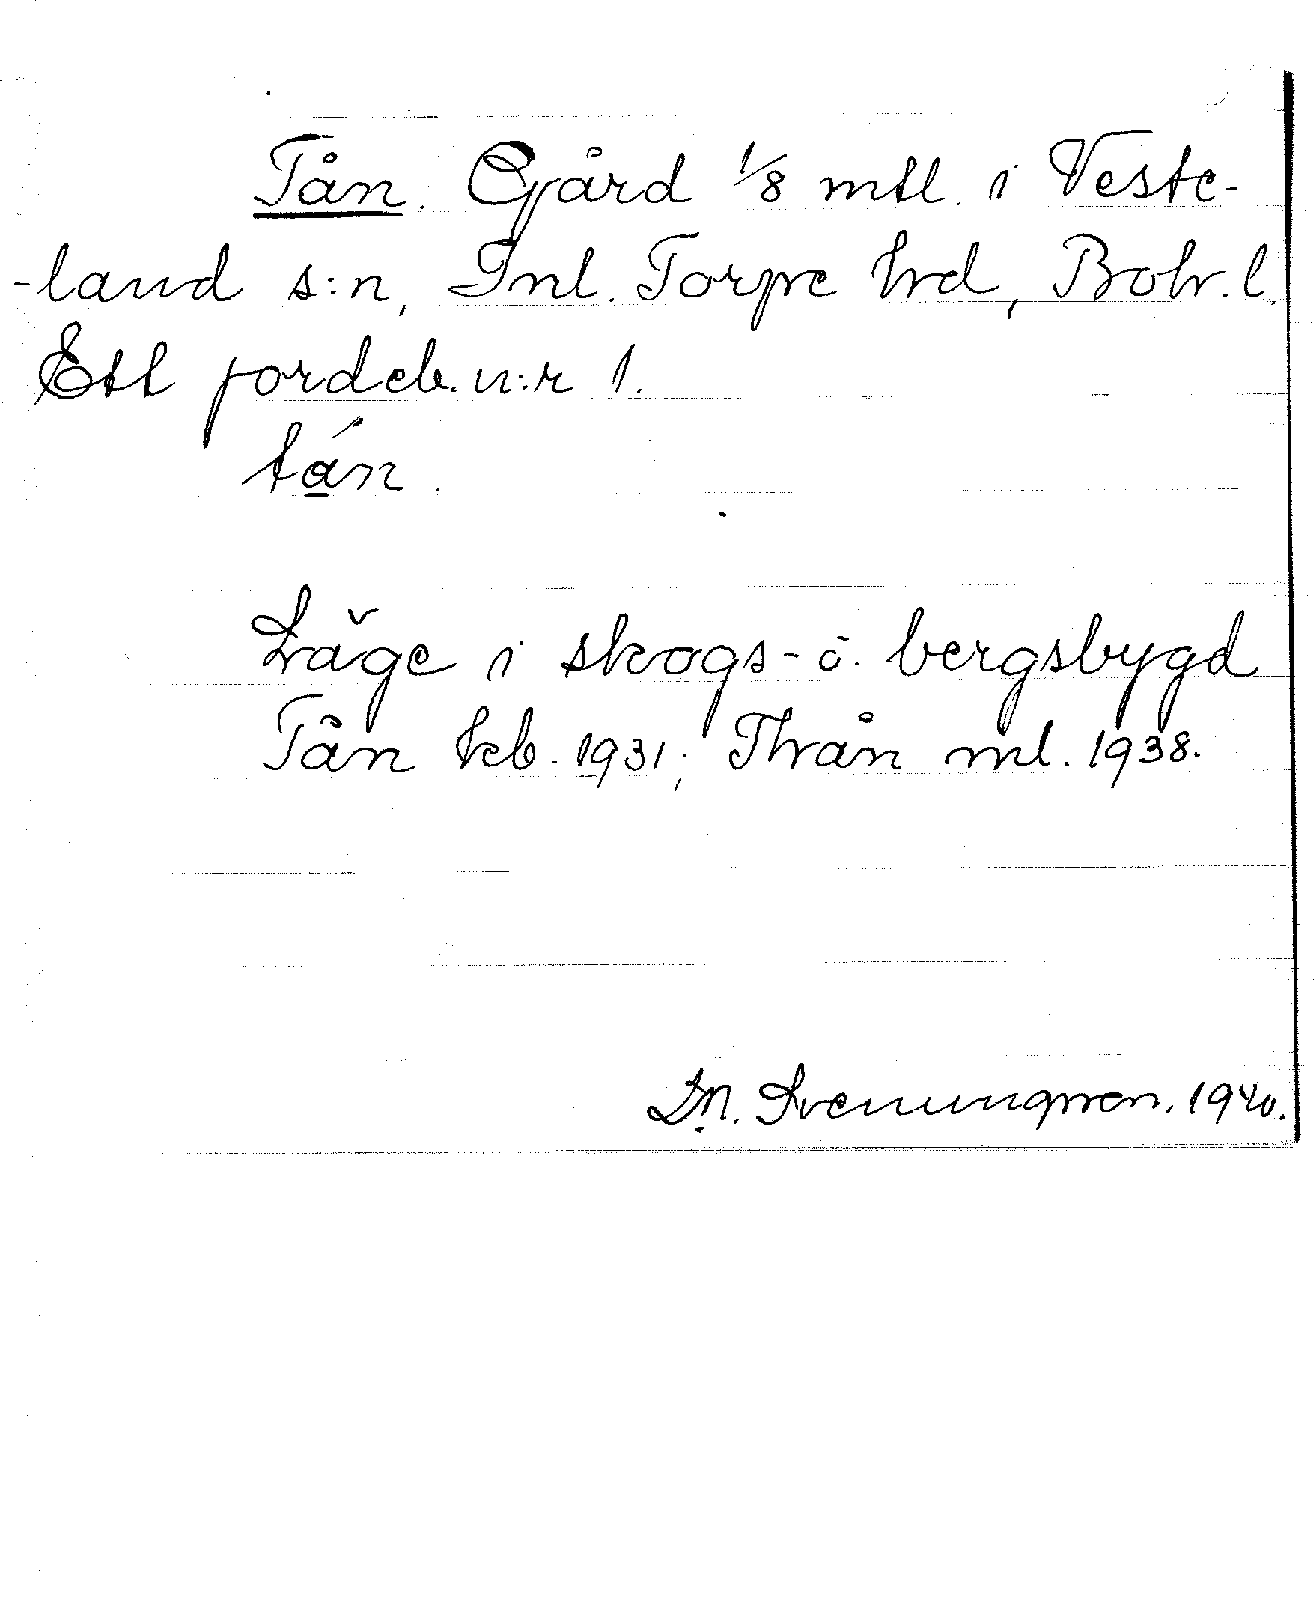 Tån. Gård 1/8 mtl. i Veste-
-land s:n, Inl. Torpe hrd, Boh. l.
Ett jordeb. n:r 1.
tán.
Läge i skogs- o. bergsbygd
Tån kb. 1931; Thån ml. 1938.
D.N. Svenungsson. 1940.